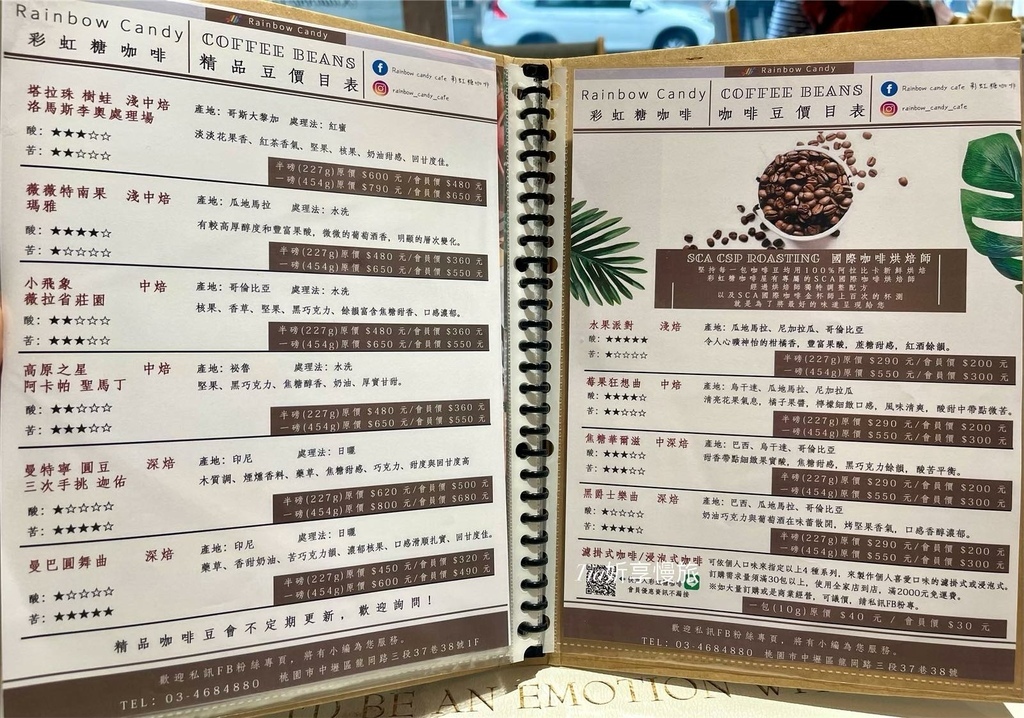 Rainbow Candy
Rainbow Candy
彩虹糖咖啡
COFFEE BEANS
精品豆價目表
Rainbow candy cafe 彩虹糖咖啡
rainbow_candy_cafe
塔拉珠 樹蛙 淺中焙
洛馬斯李奧處理場
產地：哥斯大黎加 處理法：紅蜜
酸：★★★☆☆
淡淡花果香、紅茶香氣、堅果、核果、奶油甜感、回甘度佳。
苦：★★☆☆☆
半磅(227g)原價 $600 元/會員價 $480 元
一磅(454g)原價 $790 元/會員價 $650 元
薇薇特南果 淺中焙
瑪雅
產地：瓜地馬拉 處理法：水洗
酸：★★★★☆
有較高厚醇度和豐富果酸，微微的葡萄酒香，明顯的層次變化。
苦：★☆☆☆☆
半磅(227g)原價 $480 元/會員價 $360 元
一磅(454g)原價 $650 元/會員價 $550 元
小飛象 中焙
薇拉省莊園
產地：哥倫比亞 處理法：水洗
酸：★★☆☆☆
核果、香草、堅果、黑巧克力、餘韻富含焦糖甜香、口感濃郁。
苦：★★★☆☆
半磅(227g)原價 $480 元/會員價 $360 元
一磅(454g)原價 $650 元/會員價 $550 元
高原之星 中焙
阿卡帕 聖馬丁
產地：祕魯 處理法：水洗
堅果、黑巧克力、焦糖醇香、奶油、厚實甘甜。
酸：★★☆☆☆
苦：★★★☆☆
半磅(227g)原價 $480 元/會員價 $360 元
一磅(454g)原價 $650 元/會員價 $550 元
曼特寧 圓豆 深焙
三次手挑 迦佑
產地：印尼 處理法：日曬
木質調、煙燻香料、藥草、焦糖甜感、巧克力、甜度與回甘度高
酸：★☆☆☆☆
苦：★★★★☆
半磅(227g)原價 $620 元/會員價 $500 元
一磅(454g)原價 $800 元/會員價 $680 元
曼巴圓舞曲 深焙
產地：印尼 處理法：日曬
藥草、香甜奶油、苦巧克力韻、濃郁核果、口感滑順扎實、回甘度佳。
酸：★☆☆☆☆
苦：★★★★★
半磅(227g)原價 $450 元/會員價 $320 元
一磅(454g)原價 $600 元/會員價 $490 元
精品咖啡豆會不定期更新，歡迎詢問！
歡迎私訊FB粉絲專頁，將有小編為您服務。
TEL：03-4684880 桃園市中壢區龍岡路三段37巷38號1F
Rainbow Candy
Rainbow Candy
彩虹糖咖啡
COFFEE BEANS
咖啡豆價目表
Rainbow candy cafe 彩虹糖咖啡
rainbow_candy_cafe
SCA CSP ROASTING 國際咖啡烘焙師
堅持每一包咖啡豆均用100%阿拉比卡新鮮烘焙
彩虹糖咖啡屋有專屬的SCA國際咖啡烘焙師
經過烘焙師獨特調整配方
以及SCA國際咖啡金杯師上百次的杯測
就是為了將最好的味道呈現給您
水果派對 淺焙
產地：瓜地馬拉、尼加拉瓜、哥倫比亞
酸：★★★★★
令人心曠神怡的柑橘香，豐富果酸，蔗糖甜感，紅酒餘韻。
苦：★☆☆☆☆
半磅(227g)原價 $290 元/會員價 $200 元
一磅(454g)原價 $550 元/會員價 $300 元
莓果狂想曲 中焙
產地：烏干達、瓜地馬拉、尼加拉瓜
酸：★★★★☆
清亮花果氣息，橘子果醬，檸檬細緻口感，風味清爽，酸甜中帶點微苦。
苦：★★☆☆☆
半磅(227g)原價 $290 元/會員價 $200 元
一磅(454g)原價 $550 元/會員價 $300 元
焦糖華爾滋 中深焙
產地：巴西、烏干達、哥倫比亞
酸：★★★☆☆
甜香帶點細緻果實酸，焦糖甜感，黑巧克力餘韻，酸苦平衡。
苦：★★★☆☆
半磅(227g)原價 $290 元/會員價 $200 元
一磅(454g)原價 $550 元/會員價 $300 元
黑爵士樂曲 深焙
產地：巴西、瓜地馬拉、哥倫比亞
酸：★☆☆☆☆
奶油巧克力與葡萄酒在味蕾散開，烤堅果香氣，口感香醇濃郁。
苦：★★★★☆
半磅(227g)原價 $290 元/會員價 $200 元
一磅(454g)原價 $550 元/會員價 $300 元
濾掛式咖啡/浸泡式咖啡
可依個人口味來指定以上4種系列，來製作個人喜愛口味的濾掛式或浸泡式。
訂購需求量須滿30包以上，使用全家店到店，滿2000元免運費。
※如大量訂購或是商業經營，可議價，請私訊FB粉專。
會員優惠資訊不漏接
一包(10g)原價 $40 元/會員價 $30 元
歡迎私訊FB粉絲專頁，將有小編為您服務。
TEL：03-4684880 桃園市中壢區龍岡路三段37巷38號
Tia妡享慢旅
BE AN EMOTION